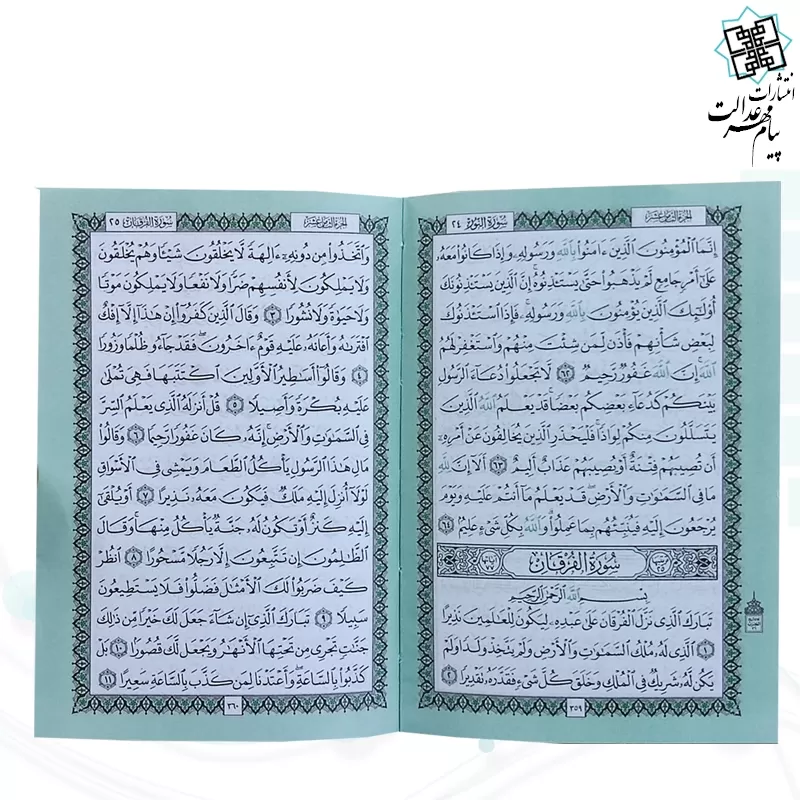 انتشارات
پیام مهر عدالت
سورة النور ٢٤
الجزء الثامن عشر
إِنَّمَا ٱلْمُؤْمِنُونَ ٱلَّذِينَ ءَامَنُوا۟ بِٱللَّهِ وَرَسُولِهِۦ وَإِذَا كَانُوا۟ مَعَهُۥ
عَلَىٰٓ أَمْرٍ جَامِعٍ لَّمْ يَذْهَبُوا۟ حَتَّىٰ يَسْتَـْٔذِنُوهُ ۚ إِنَّ ٱلَّذِينَ يَسْتَـْٔذِنُونَكَ
أُو۟لَـٰٓئِكَ ٱلَّذِينَ يُؤْمِنُونَ بِٱللَّهِ وَرَسُولِهِۦ ۚ فَإِذَا ٱسْتَـْٔذَنُوكَ
لِبَعْضِ شَأْنِهِمْ فَأْذَن لِّمَن شِئْتَ مِنْهُمْ وَٱسْتَغْفِرْ لَهُمُ
ٱللَّهَ ۚ إِنَّ ٱللَّهَ غَفُورٌ رَّحِيمٌ ٦٢ لَّا تَجْعَلُوا۟ دُعَآءَ ٱلرَّسُولِ
بَيْنَكُمْ كَدُعَآءِ بَعْضِكُم بَعْضًا ۚ قَدْ يَعْلَمُ ٱللَّهُ ٱلَّذِينَ
يَتَسَلَّلُونَ مِنكُمْ لِوَاذًا ۚ فَلْيَحْذَرِ ٱلَّذِينَ يُخَالِفُونَ عَنْ أَمْرِهِۦٓ
أَن تُصِيبَهُمْ فِتْنَةٌ أَوْ يُصِيبَهُمْ عَذَابٌ أَلِيمٌ ٦٣ أَلَآ إِنَّ لِلَّهِ
مَا فِى ٱلسَّمَـٰوَٰتِ وَٱلْأَرْضِ ۖ قَدْ يَعْلَمُ مَآ أَنتُمْ عَلَيْهِ وَيَوْمَ
يُرْجَعُونَ إِلَيْهِ فَيُنَبِّئُهُم بِمَا عَمِلُوا۟ ۗ وَٱللَّهُ بِكُلِّ شَىْءٍ عَلِيمٌۢ ٦٤
سُورَةُ ٱلْفُرْقَانِ
بِسْمِ ٱللَّهِ ٱلرَّحْمَـٰنِ ٱلرَّحِيمِ
تَبَارَكَ ٱلَّذِى نَزَّلَ ٱلْفُرْقَانَ عَلَىٰ عَبْدِهِۦ لِيَكُونَ لِلْعَـٰلَمِينَ نَذِيرًا
١ ٱلَّذِى لَهُۥ مُلْكُ ٱلسَّمَـٰوَٰتِ وَٱلْأَرْضِ وَلَمْ يَتَّخِذْ وَلَدًا وَلَمْ
يَكُن لَّهُۥ شَرِيكٌ فِى ٱلْمُلْكِ وَخَلَقَ كُلَّ شَىْءٍ فَقَدَّرَهُۥ تَقْدِيرًا ٢
٣٥٩
الجزء الثامن عشر
سورة الفرقان ٢٥
وَٱتَّخَذُوا۟ مِن دُونِهِۦٓ ءَالِهَةً لَّا يَخْلُقُونَ شَيْـًٔا وَهُمْ يُخْلَقُونَ
وَلَا يَمْلِكُونَ لِأَنفُسِهِمْ ضَرًّا وَلَا نَفْعًا وَلَا يَمْلِكُونَ مَوْتًا
وَلَا حَيَوٰةً وَلَا نُشُورًا ٣ وَقَالَ ٱلَّذِينَ كَفَرُوٓا۟ إِنْ هَـٰذَآ إِلَّآ إِفْكٌ
ٱفْتَرَىٰهُ وَأَعَانَهُۥ عَلَيْهِ قَوْمٌ ءَاخَرُونَ ۖ فَقَدْ جَآءُو ظُلْمًا وَزُورًا
٤ وَقَالُوٓا۟ أَسَـٰطِيرُ ٱلْأَوَّلِينَ ٱكْتَتَبَهَا فَهِىَ تُمْلَىٰ
عَلَيْهِ بُكْرَةً وَأَصِيلًا ٥ قُلْ أَنزَلَهُ ٱلَّذِى يَعْلَمُ ٱلسِّرَّ
فِى ٱلسَّمَـٰوَٰتِ وَٱلْأَرْضِ ۚ إِنَّهُۥ كَانَ غَفُورًا رَّحِيمًا ٦ وَقَالُوا۟
مَالِ هَـٰذَا ٱلرَّسُولِ يَأْكُلُ ٱلطَّعَامَ وَيَمْشِى فِى ٱلْأَسْوَاقِ ۙ
لَوْلَآ أُنزِلَ إِلَيْهِ مَلَكٌ فَيَكُونَ مَعَهُۥ نَذِيرًا ٧ أَوْ يُلْقَىٰٓ
إِلَيْهِ كَنزٌ أَوْ تَكُونُ لَهُۥ جَنَّةٌ يَأْكُلُ مِنْهَا ۚ وَقَالَ
ٱلظَّـٰلِمُونَ إِن تَتَّبِعُونَ إِلَّا رَجُلًا مَّسْحُورًا ٨ ٱنظُرْ
كَيْفَ ضَرَبُوا۟ لَكَ ٱلْأَمْثَـٰلَ فَضَلُّوا۟ فَلَا يَسْتَطِيعُونَ
سَبِيلًا ٩ تَبَارَكَ ٱلَّذِىٓ إِن شَآءَ جَعَلَ لَكَ خَيْرًا مِّن ذَٰلِكَ
جَنَّـٰتٍ تَجْرِى مِن تَحْتِهَا ٱلْأَنْهَـٰرُ وَيَجْعَل لَّكَ قُصُورًۢا ١٠ بَلْ
كَذَّبُوا۟ بِٱلسَّاعَةِ ۖ وَأَعْتَدْنَا لِمَن كَذَّبَ بِٱلسَّاعَةِ سَعِيرًا ١١
٣٦٠